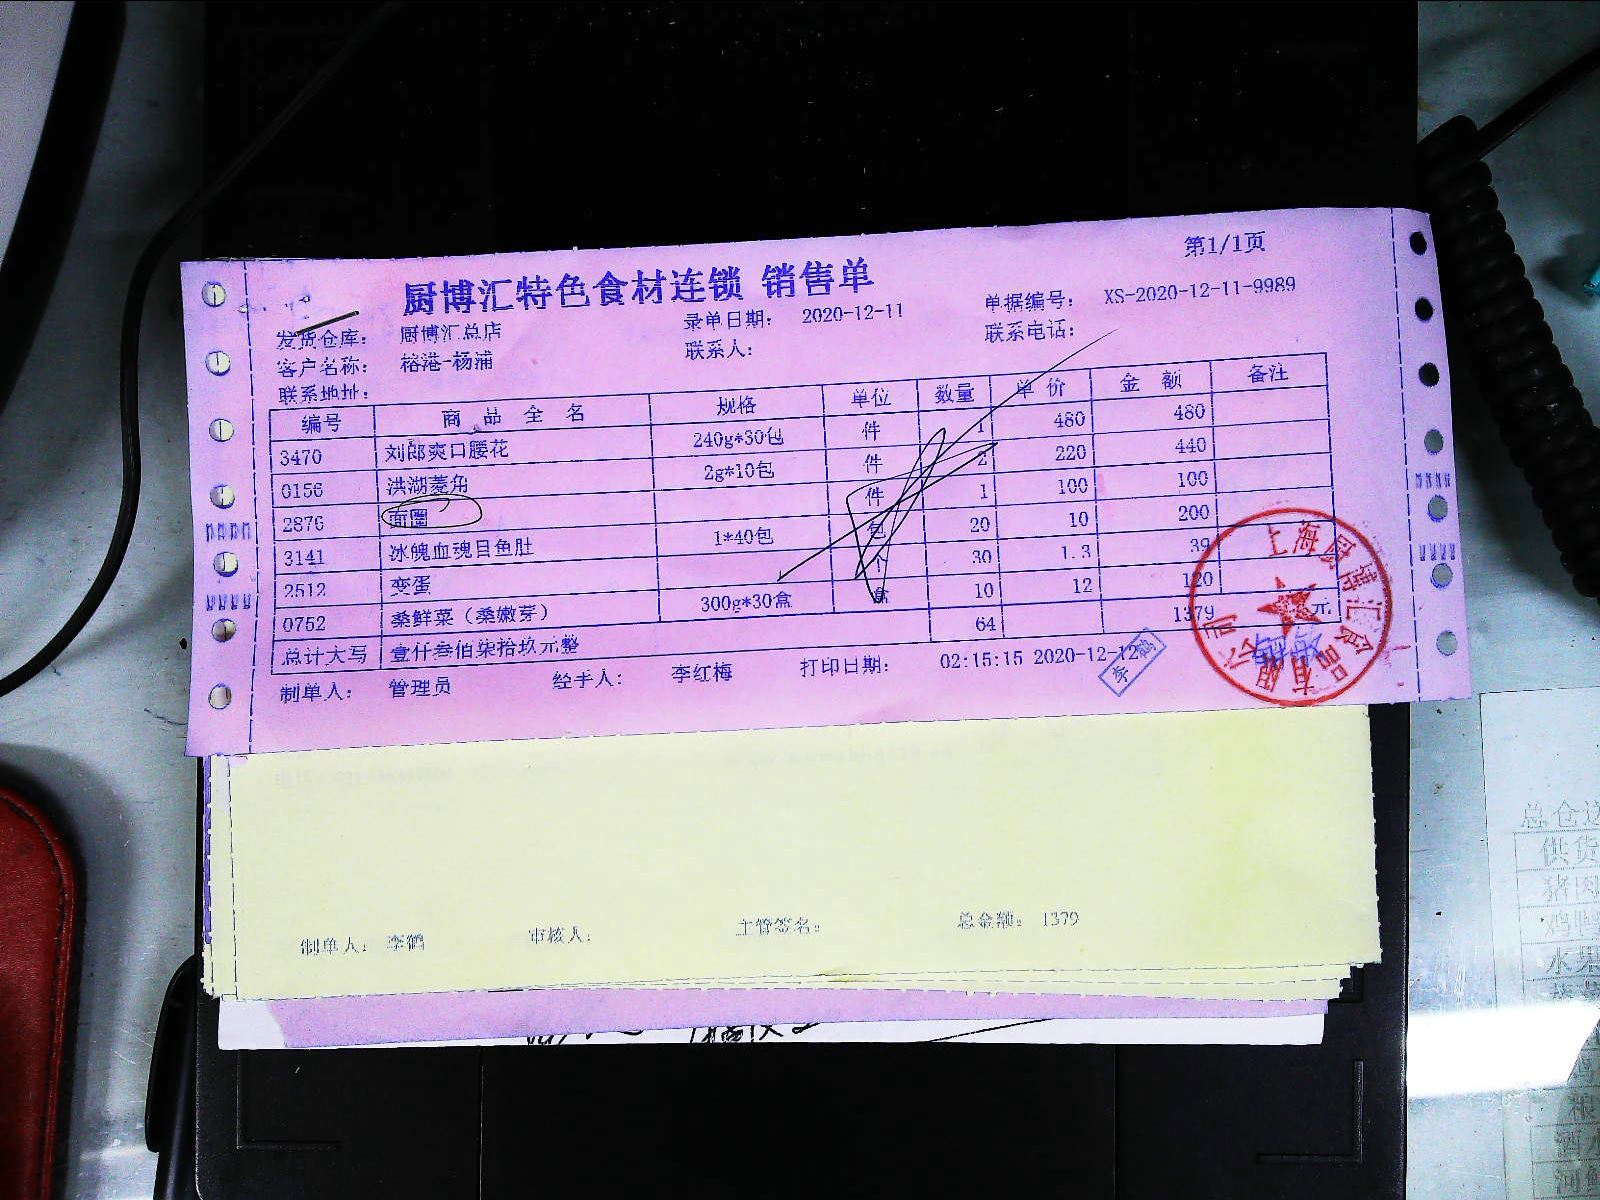 第1/1页
厨博汇特色食材连锁 销售单
发货仓库： 厨博汇总店 录单日期： 2020-12-11 单据编号： XS-2020-12-11-9989
客户名称： 榕港-杨浦 联系人： 联系电话：
联系地址：
编号 商品全名 规格 单位 数量 单价 金额 备注
3470 刘郎爽口腰花 240g*30包 件 1 480 480
0156 洪湖菱角 2g*10包 件 2 220 440
2876 面圈 件 1 100 100
3141 冰魄血魂目鱼肚 1*40包 包 20 10 200
2512 变蛋 个 30 1.3 39
0752 桑鲜菜（桑嫩芽） 300g*30盒 盒 10 12 120
总计大写 壹仟叁佰柒拾玖元整 64 1379 元
制单人： 管理员 经手人： 李红梅 打印日期： 02:15:15 2020-12-12
李鹤
上海厨博汇食品有限公司
制单人： 李鹤 审核人： 主管签名： 总金额： 1379
总仓
供货
猪肉
鸡鸭
水果
粮
酒水
河鲜